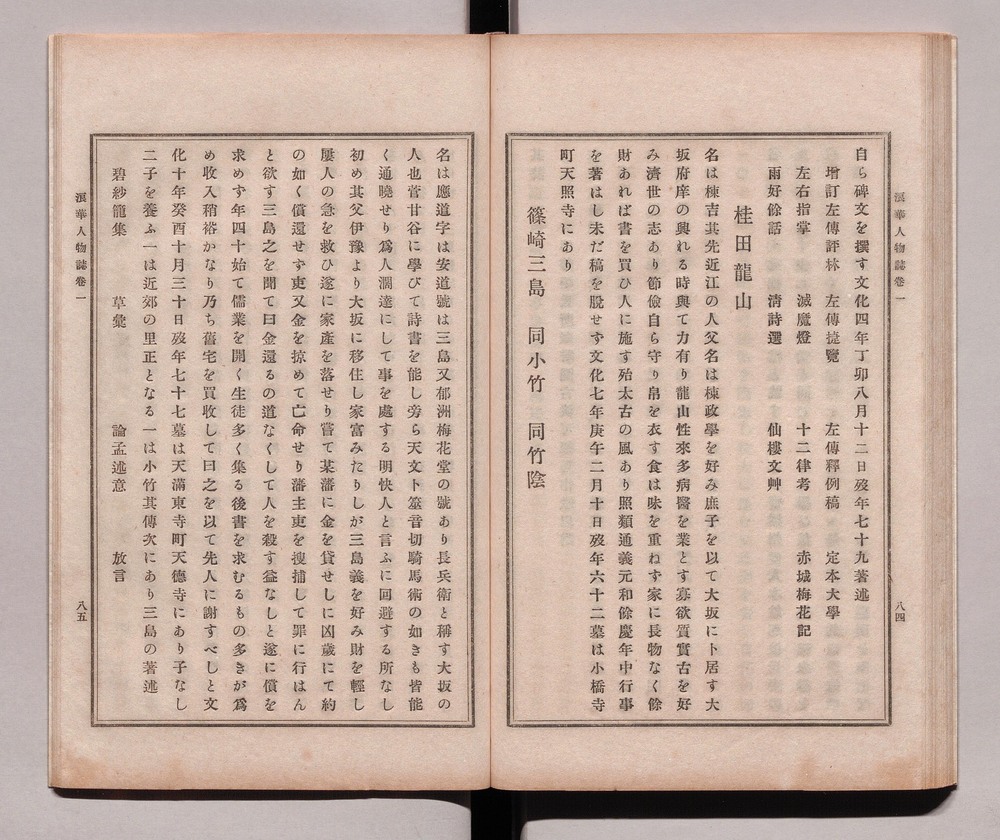 浪華人物誌卷一
八四
自ら碑文を撰す文化四年丁卯八月十二日歿年七十九著述
增訂左傳評林　左傳捷覽　左傳釋例稿　定本大學
左右指掌　滅魔燈　十二律考　赤城梅花記
雨好餘話　淸詩選　仙樓文艸
桂田龍山
名は棟吉其先近江の人父名は棟政學を好み庶子を以て大坂に卜居す大
坂府庠の興れる時與て力有り龍山性來多病醫を業とす寡欲質實古を好
み濟世の志あり節儉自ら守り帛を衣す食は味を重ねず家に長物なく餘
財あれば書を買ひ人に施す殆太古の風あり照類通義元和餘慶年中行事
を著はし未だ稿を脫せず文化七年庚午二月十日歿年六十二墓は小橋寺
町天照寺にあり
篠崎三島　同小竹　同竹陰
名は應道字は安道號は三島又郁洲梅花堂の號あり長兵衛と稱す大坂の
人也菅甘谷に學びて詩書を能し旁ら天文卜筮音切騎馬術の如きも皆能
く通曉せり爲人濶達にして事を處する明快人と言ふに回避する所なし
初め其父伊豫より大坂に移住し家富みたりしが三島義を好み財を輕し
屢人の急を救ひ遂に家產を落せり嘗て某藩に金を貸せしに凶歲にて約
の如く償還せず吏又金を掠めて亡命せり藩主吏を搜捕して罪に行はん
と欲す三島之を聞て曰金還るの道なくして人を殺す益なしと遂に償を
求めす年四十始て儒業を開く生徒多く集る後書を求むるもの多きが爲
め收入稍裕かなり乃ち舊宅を買收して曰之を以て先人に謝すべしと文
化十年癸酉十月三十日歿年七十七墓は天滿東寺町天德寺にあり子なし
二子を養ふ一は近郊の里正となる一は小竹其傳次にあり三島の著述
碧紗籠集　草彙　論孟述意　放言
浪華人物誌卷一
八五